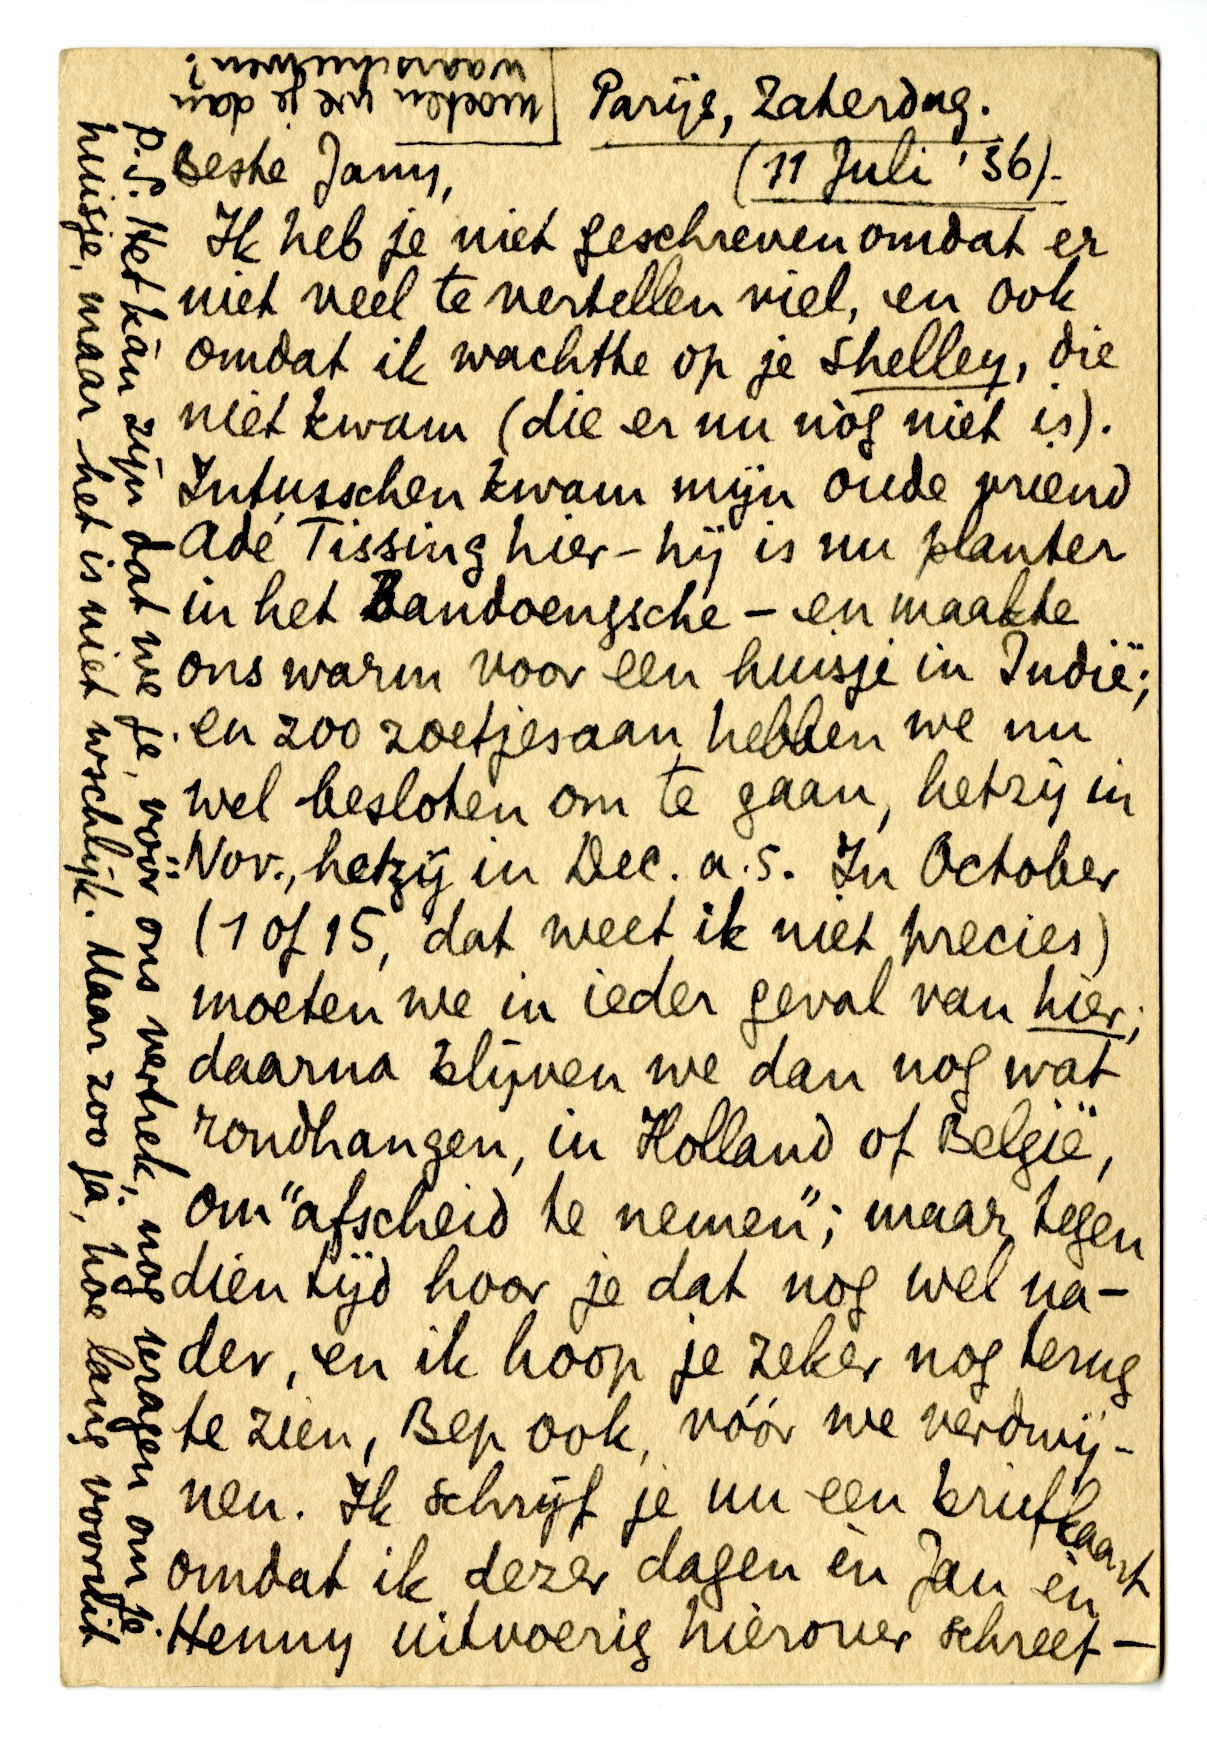 Parijs, Zaterdag.
(11 Juli '36).
Beste Jany,
Ik heb je niet geschreven omdat er
niet veel te vertellen viel, en ook
omdat ik wachtte op je Shelley, die
niet kwam (die er nu nòg niet is).
Intusschen kwam mijn oude vriend
Adé Tissing hier – hij is nu planter
in het Bandoengsche – en maakte
ons warm voor een huisje in Indië;
en zoo zoetjesaan hebben we nu
wel besloten om te gaan, hetzij in
Nov., hetzij in Dec. a.s. In October
(1 of 15, dat weet ik niet precies)
moeten we in ieder geval van hier;
daarna blijven we dan nog wat
rondhangen, in Holland of België,
om "afscheid te nemen"; maar tegen
dien tijd hoor je dat nog wel na-
der, en ik hoop je zeker nog terug
te zien, Bep ook, vóór we verdwij-
nen. Ik schrijf je nu een briefkaart
omdat ik dezer dagen èn Jan èn
Henny uitvoerig hierover schreef –
P.S. Het kán zijn dat we je, vóór ons vertrek, nog vragen om je
huisje, maar het is niet wschlijk. Maar zoo ja, hoe lang vooruit
moeten we je dan
waarschuwen?